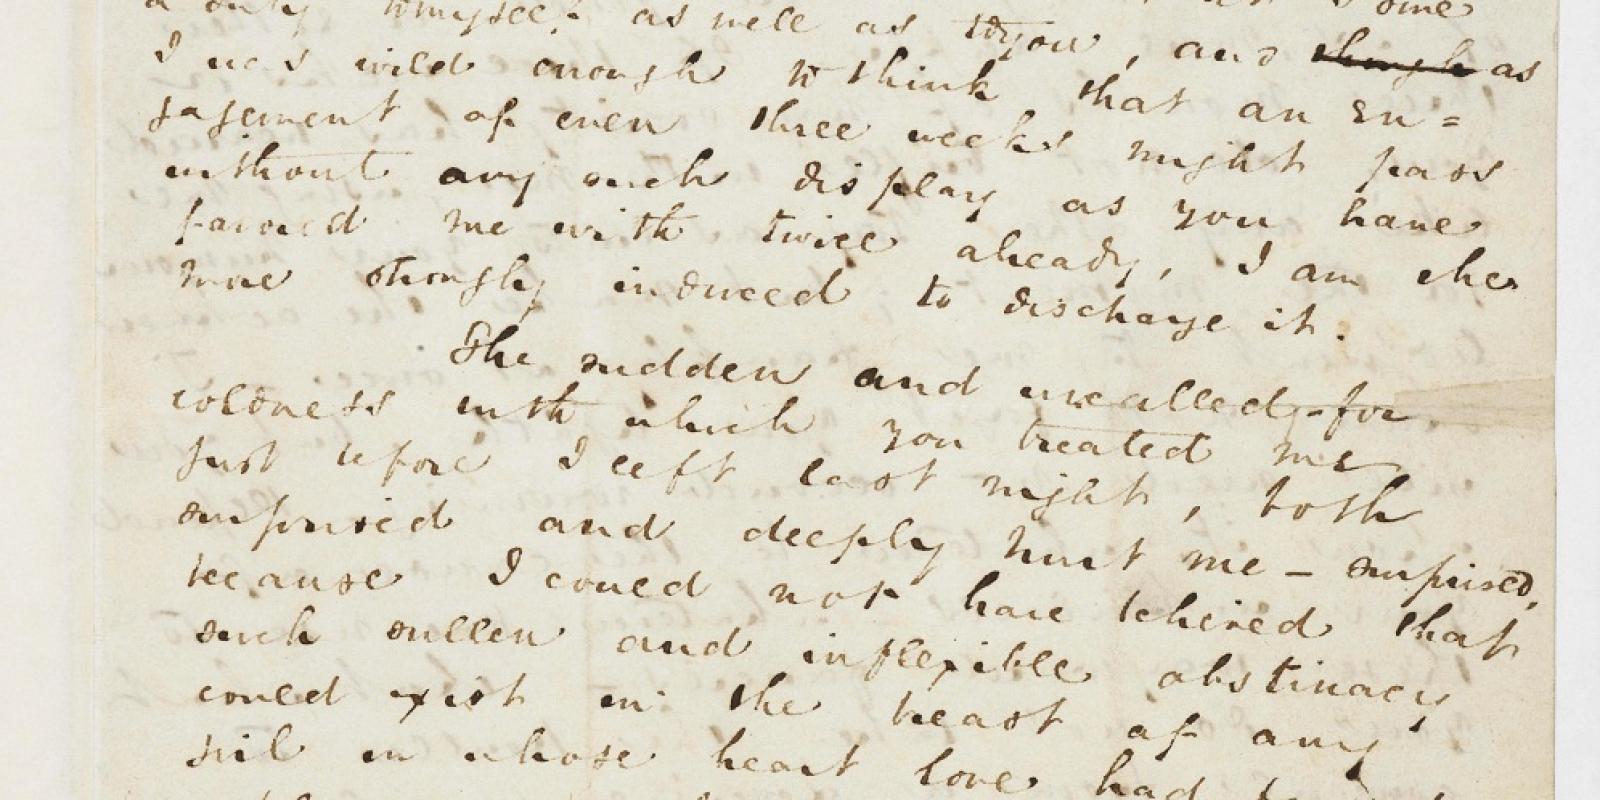 a duty to myself as well as to you, and though as
I was wild enough to think that an en=
gagement of even three weeks might pass
without any such display as you have
favored me with twice already, I am the
more strongly induced to discharge it.
The sudden and uncalled-for
coldness with which you treated me
just before I left last night, both
surprised and deeply hurt me – surprised,
because I could not have belived that
such sullen and inflexible obstinacy
could exist in the breast of any
girl in whose heart love had